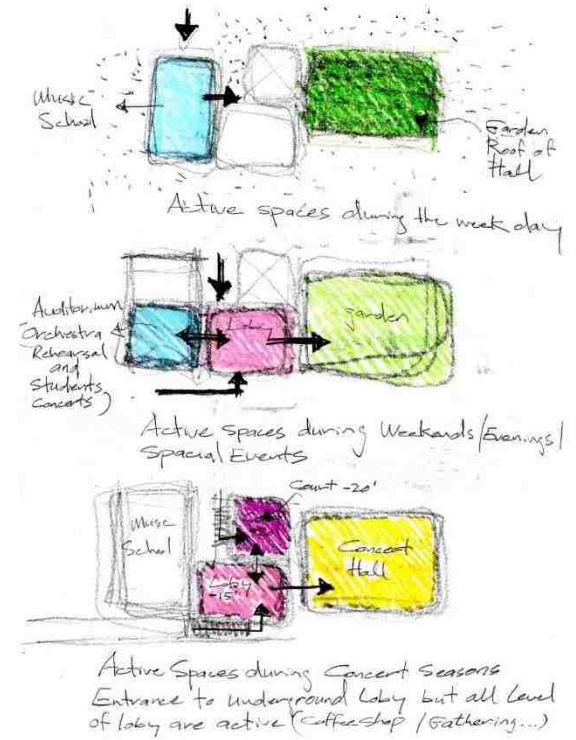 Music
School
Garden
Roof of
Hall
Active spaces during the week day
Auditorium
(Orchestra
Rehearsal
and
Students
Concerts)
Loby
garden
Active spaces during Weekends/Evenings/
Spacial Events
Court -20'
Music
School
Loby
-15'
Concert
Hall
Active Spaces during Concert Seasons
Entrance to underground Loby but all level
of loby are active (Coffee shop / Gathering...)